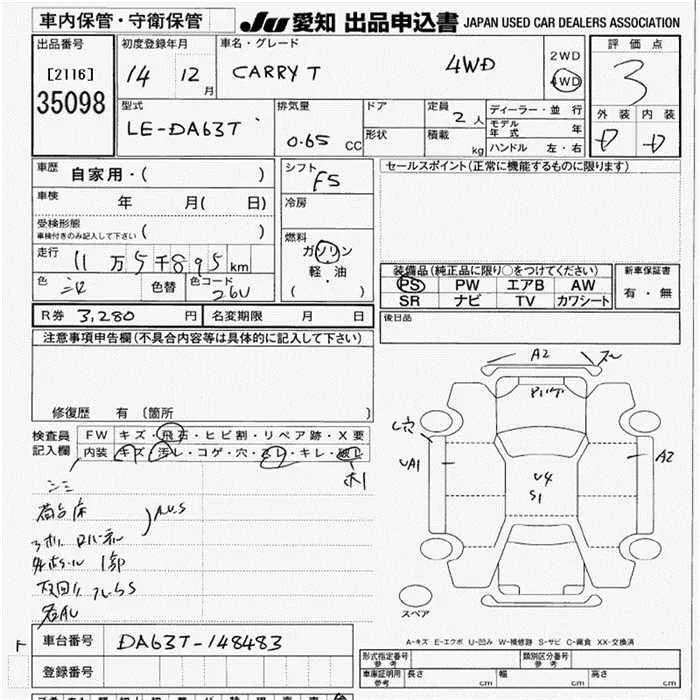 車内保管・守衛保管
JU 愛知 出品申込書 JAPAN USED CAR DEALERS ASSOCIATION
出品番号 初度登録年月 車名・グレード 2WD 評価点
[2116] 14 12月 CARRY T 4WD 4WD 3
35098 型式 排気量 ドア 定員 2人 ディーラー・並行 外装 内装
LE-DA63T 0.65 CC 形状 積載 kg モデル年式 年 D D
ハンドル 左・右
車歴 自家用・( ) シフト F5 セールスポイント(正常に機能するものに限ります)
車検 年 月( 日) 冷房
受検形態 ( )
車検付きのみ記入して下さい
走行 11万5千895km 燃料 ガソリン 装備品(純正品に限り○をつけてください) 新車保証書
軽・油 PS PW エアB AW 有・無
色 シロ 色替 色コード 26U ( ・ ) SR ナビ TV カワシート
R券 3,280円 名変期限 月 日 後日品
注意事項申告欄(不具合内容等は具体的に記入して下さい)
A2
修復歴 有 〔箇所 〕
検査員 FW キズ・飛石・ヒビ割・リペア跡・X要
記入欄 内装 キズ・汚レ・コゲ・穴・スレ・キレ・破レ
UA1 A2
U4
S1
荷台床 A.U.S
スペア
A-キズ E-エクボ U-凹み W-補修跡 S-サビ C-腐食 XX-交換済
車台番号 DA63T-148483
型式指定番号 参考 類別区分番号 参考
登録番号 車庫証明用 参考 長さ cm 幅 cm 高さ cm